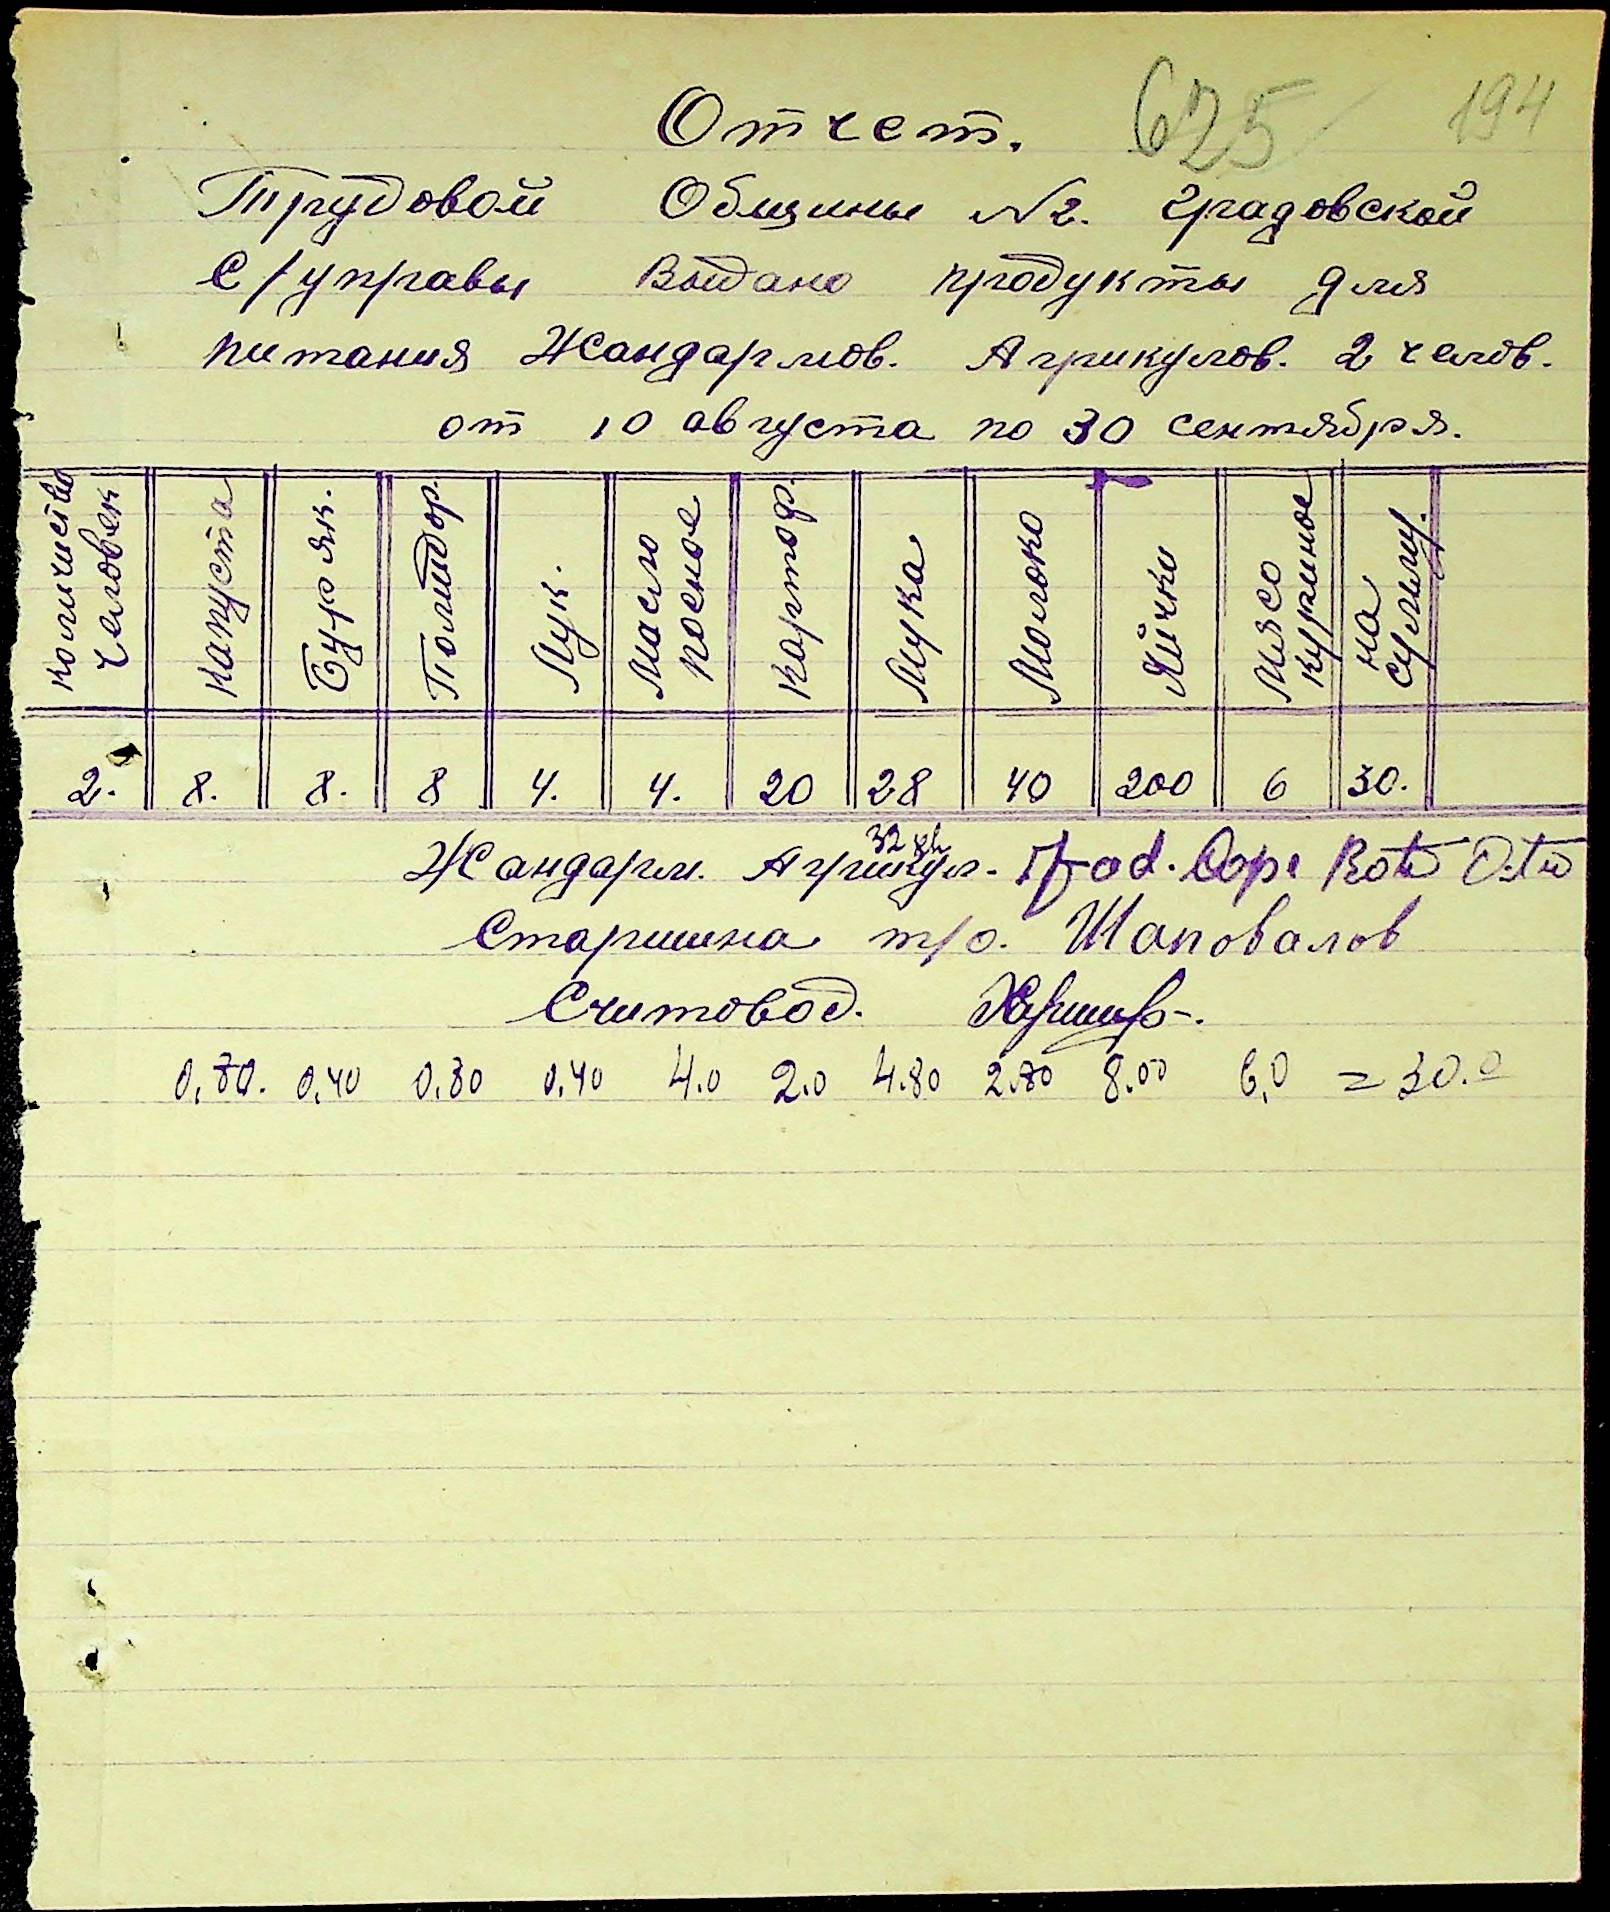 Отчет. 625 194
Трудовой Общины №2. Градовской
С/управы Выдано продукты для
питания Жандармов. Агрикулов. 2 челов.
от 10 августа по 30 сентября.
количество человек | капуста | Буряк. | Полмидор. | Лук. | Масло посное | картоф. | Мука | Молоко | Яички | Мясо куриное | на сумму.
2. | 8. | 8. | 8 | 4. | 4. | 20 | 28 | 40 | 200 | 6 | 30.
32
Жандарм. Агрикул.
Старшина т/о. Шаповалов
Считовод.
0,80. 0,40 0.80 0,40 4.0 2.0 4.80 2.80 8.00 6,0 = 30.0